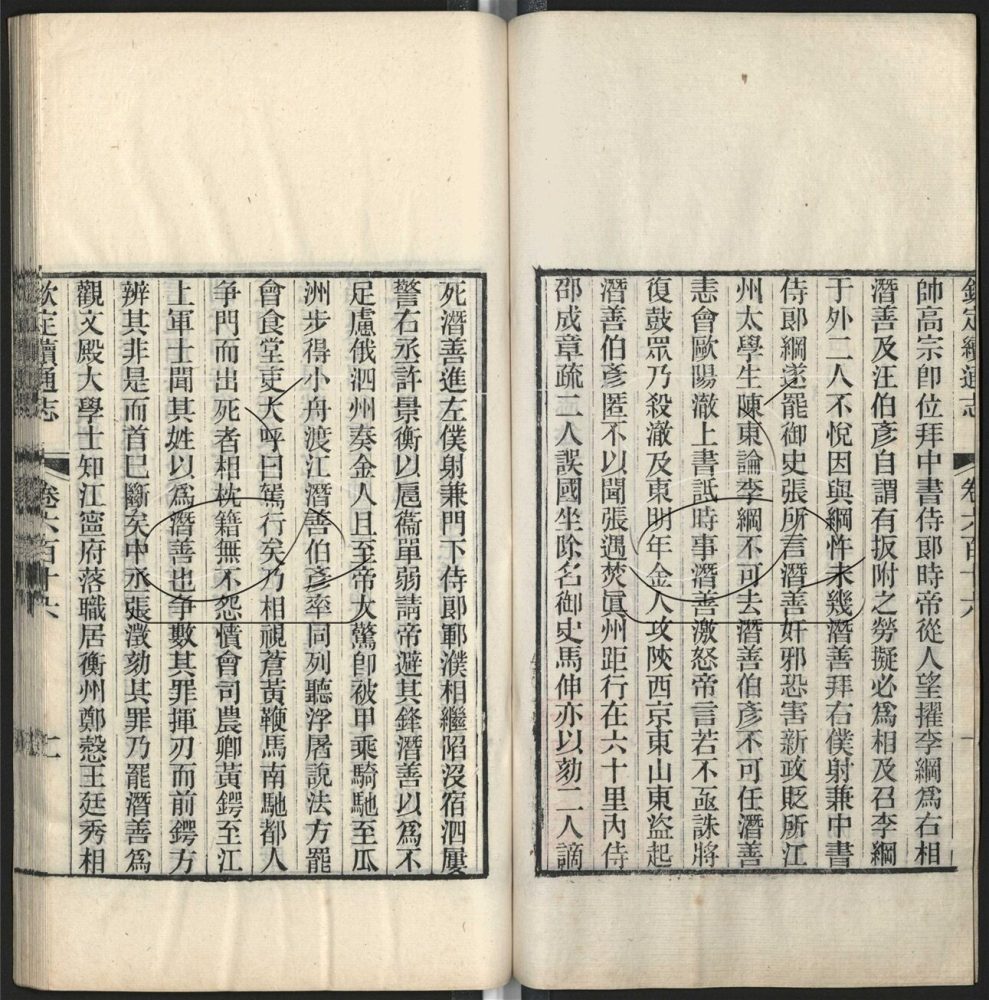 欽定續通志 卷六百十六
帥高宗卽位拜中書侍郞時帝從人望擢李綱爲右相
潛善及汪伯彥自謂有扳附之勞擬必爲相及召李綱
于外二人不悅因與綱忤未幾潛善拜右僕射兼中書
侍郞綱遂罷御史張所言潛善奸邪恐害新政貶所江
州太學生陳東論李綱不可去潛善伯彥不可任潛善
恚會歐陽澈上書詆時事潛善激怒帝言若不亟誅將
復鼓眾乃殺澈及東明年金人攻陝西京東山東盜起
潛善伯彥匿不以聞張遇焚眞州距行在六十里內侍
邵成章疏二人誤國坐除名御史馬伸亦以劾二人謫
死潛善進左僕射兼門下侍郞鄆濮相繼陷沒宿泗屢
警右丞許景衡以扈衞單弱請帝避其鋒潛善以爲不
足慮俄泗州奏金人且至帝大驚卽被甲乘騎馳至瓜
洲步得小舟渡江潛善伯彥率同列聽浮屠說法方罷
會食堂吏大呼曰駕行矣乃相視蒼黃鞭馬南馳都人
争門而出死者相枕籍無不怨憤會司農卿黃鍔至江
上軍士聞其姓以爲潛善也争數其罪揮刃而前鍔方
辨其非是而首已斷矣中丞張澂劾其罪乃罷潛善爲
觀文殿大學士知江寧府落職居衡州鄭瑴王廷秀相
欽定續通志 卷六百十六 七